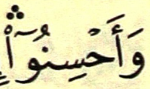 وَأَحْسِنُوٓا۟ۛ